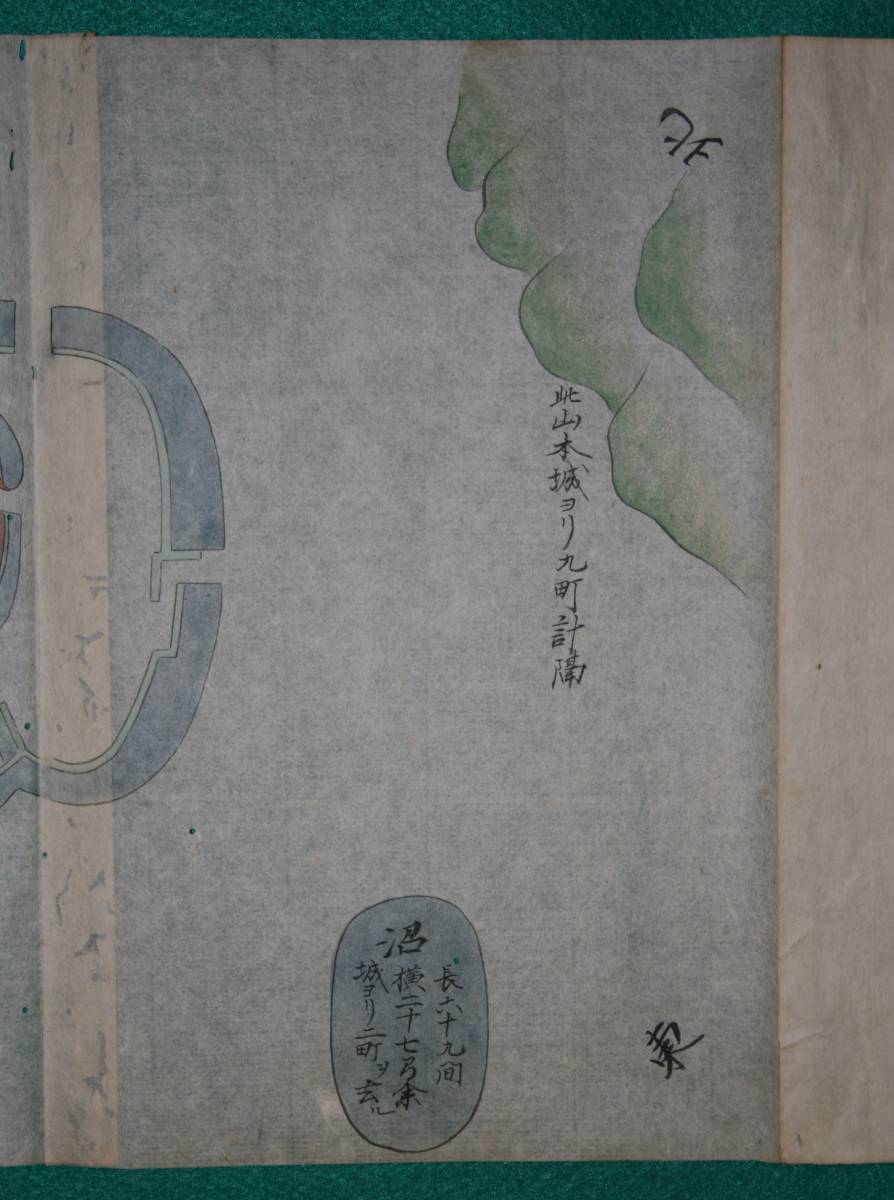 北
此山本城ヨリ九町計隔
沼
長六十九間
横二十七間余
城ヨリ二町ヲ去ル
東